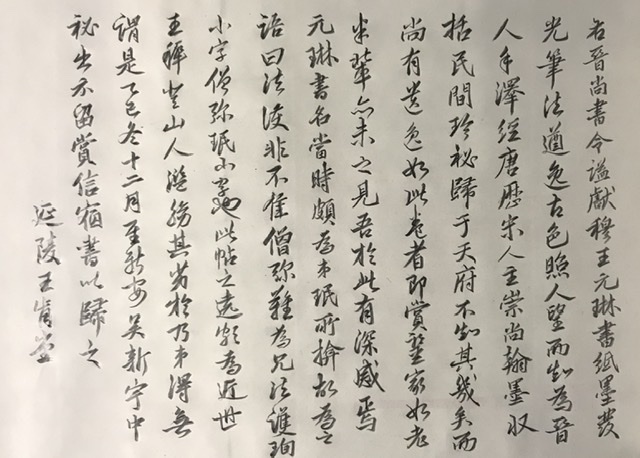 右晉尚書令謚獻穆王元琳書紙墨發
光筆法遒逸古色照人望而知為晉
人手澤經唐歷宋人主崇尚翰墨収
括民間珍秘歸于天府不知其幾矣而
尚有遺逸如此卷者即賞鑒家如老
米輩亦未之見吾於此有深感焉
元琳書名當時頗為弟珉所揜故為之
語曰法護非不佳僧弥難為兄法護珣
小字僧弥珉小字也此帖之為近世
王穉登山人其劣於乃弟得無
謂是乙巳冬十二月至新安吳新宇中
秘出示留賞信宿書以歸之
延陵王肯堂